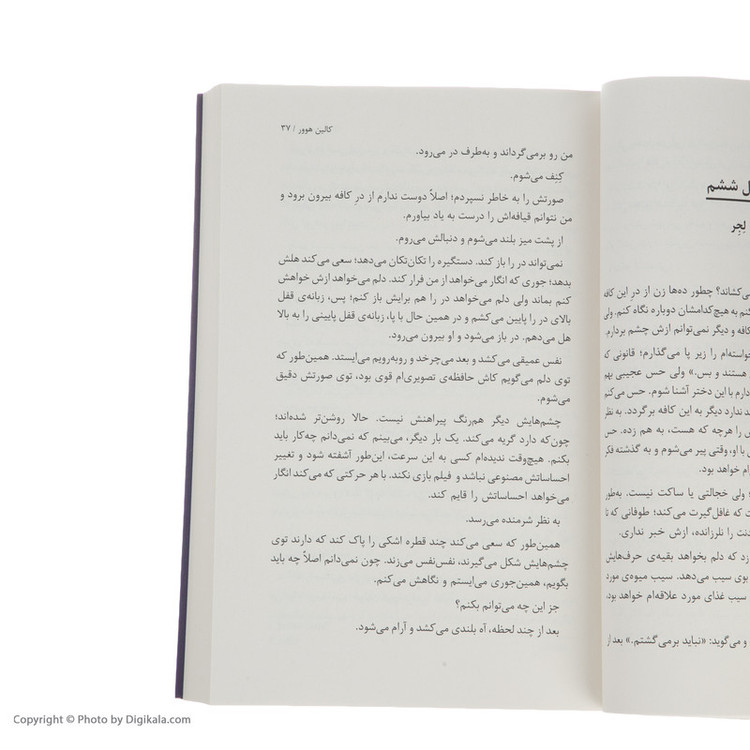 کالین هوور / ۳۷
من رو برمی‌گرداند و به‌طرف در می‌رود.
کِنِف می‌شوم.
صورتش را به خاطر نسپردم؛ اصلاً دوست ندارم از درِ کافه بیرون برود و
من نتوانم قیافه‌اش را درست به یاد بیاورم.
از پشت میز بلند می‌شوم و دنبالش می‌روم.
نمی‌تواند در را باز کند. دستگیره را تکان‌تکان می‌دهد؛ سعی می‌کند هلش
بدهد؛ جوری که انگار می‌خواهد از من فرار کند. دلم می‌خواهد ازش خواهش
کنم بماند ولی دلم می‌خواهد در را هم برایش باز کنم؛ پس، زبانه‌ی قفل
بالای در را پایین می‌کشم و در همین حال با پا، زبانه‌ی قفل پایینی را به بالا
هل می‌دهم. در باز می‌شود و او بیرون می‌رود.
نفس عمیقی می‌کشد و بعد می‌چرخد و روبه‌رویم می‌ایستد. همین‌طور که
توی دلم می‌گویم کاش حافظه‌ی تصویری‌ام قوی بود، توی صورتش دقیق
می‌شوم.
چشم‌هایش دیگر هم‌رنگ پیراهنش نیست. حالا روشن‌تر شده‌اند؛
چون‌که دارد گریه می‌کند. یک بار دیگر، می‌بینم که نمی‌دانم چه‌کار باید
بکنم. هیچ‌وقت ندیده‌ام کسی به این سرعت، این‌طور آشفته شود و تغییر
احساساتش مصنوعی نباشد و فیلم بازی نکند. با هر حرکتی که می‌کند انگار
می‌خواهد احساساتش را قایم کند.
به نظر شرمنده می‌رسد.
همین‌طور که سعی می‌کند چند قطره اشکی را پاک کند که دارند توی
چشم‌هایش شکل می‌گیرند، نفس‌نفس می‌زند. چون نمی‌دانم اصلاً چه باید
بگویم، همین‌جوری می‌ایستم و نگاهش می‌کنم.
جز این چه می‌توانم بکنم؟
بعد از چند لحظه، آه بلندی می‌کشد و آرام می‌شود.
ل ششم
لِجِر
ی‌کشاند؟ چطور ده‌ها زن از درِ این کافه
کنم به هیچ‌کدامشان دوباره نگاه کنم. ولی
کافه و دیگر نمی‌توانم ازش چشم بردارم.
خواسته‌ام را زیر پا می‌گذارم؛ قانونی که
هستند و بس.» ولی حس عجیبی بهم
دارم با این دختر آشنا شوم. حس می‌کنم
ند ندارد دیگر به این کافه برگردد. به نظر
ش را هرچه که هست، به هم زده. حس
با او، وقتی پیر می‌شوم و به گذشته فکر
ام خواهد بود.
؛ ولی خجالتی یا ساکت نیست. به‌طور
ت که غافل‌گیرت می‌کند؛ طوفانی که تا
دنت را نلرزانده، ازش خبر نداری.
زد که دلم بخواهد بقیه‌ی حرف‌هایش
بوی سیب می‌دهد. سیب میوه‌ی مورد
سیب غذای مورد علاقه‌ام خواهد بود.
و می‌گوید: «نباید برمی‌گشتم.» بعد از
Copyright © Photo by Digikala.com